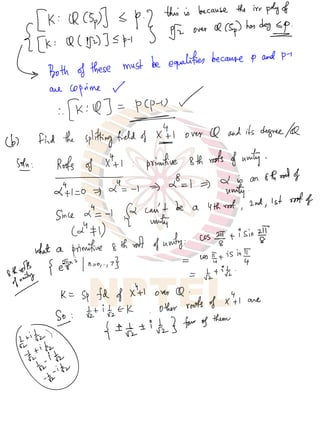 [K: Q(ζp)] ≤ p.
[K: Q(ᵖ√2)] ≤ p-1
this is because the irr poly of
ᵖ√2 over Q(ζp) has deg ≤ p.
Both of these must be equalities because p and p-1
are coprime ✓
∴ [K: Q] = p(p-1) ✓
(b) Find the splitting field of x⁴+1 over Q and its degree /Q
Soln: Roots of x⁴+1 primitive 8th roots of unity.
α⁴+1=0 ⇒ α⁴=-1 ⇒ α⁸=1 ⇒ α is an 8th root of unity
Since α⁴=-1, (α⁴≠1) { α can't be a 4th root, 2nd, 1st root of unity
what a primitive 8th root of unity: cos 2π/8 + i sin 2π/8
8th roots of unity { e^(2πi/8 n) | n=0,..,7} = cos π/4 + i sin π/4
= 1/√2 + i 1/√2.
K = sp fd of x⁴+1 over Q
So: 1/√2 + i 1/√2 ∈ K other roots of x⁴+1 are
{ ± 1/√2 ± i 1/√2 } four of them
1/√2 + i 1/√2
-1/√2 + i 1/√2
1/√2 - i 1/√2
-1/√2 - i 1/√2
NPTEL